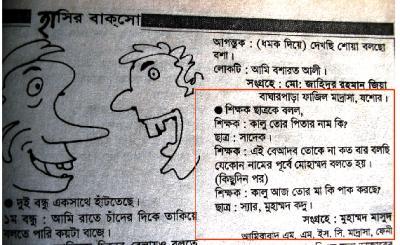 হাসির বাক্সো
আগন্তুক : (ধমক দিয়ে) দেখছি শোয়া বলছো
বশা।
লোকটি : আমি বশারত আলী।
সংগ্রহে : মো: জাহিদুর রহমান জিয়া
বাঘারপাড়া ফাজিল মাদ্রাসা, যশোর।
● শিক্ষক ছাত্রকে বলল,
শিক্ষক : কালু তোর পিতার নাম কি?
ছাত্র : সাদেক।
শিক্ষক : এই বেআদব তোকে না কত বার বলছি
যেকোন নামের পূর্বে মোহাম্মদ বলতে হয়।
(কিছুদিন পর)
শিক্ষক : কালু আজ তোর মা কি পাক করছে?
ছাত্র : স্যার, মুহাম্মদ কদু।
সংগ্রহে : মুহাম্মদ মাসুদ
এম. এম. ইস. সি. মাদ্রাসা, ফেনী
● দুই বন্ধু একসাথে হাঁটতেছে।
১ম বন্ধু : আমি রাতে চাঁদের দিকে তাকিয়ে
বলতে পারি কয়টা বাজে।